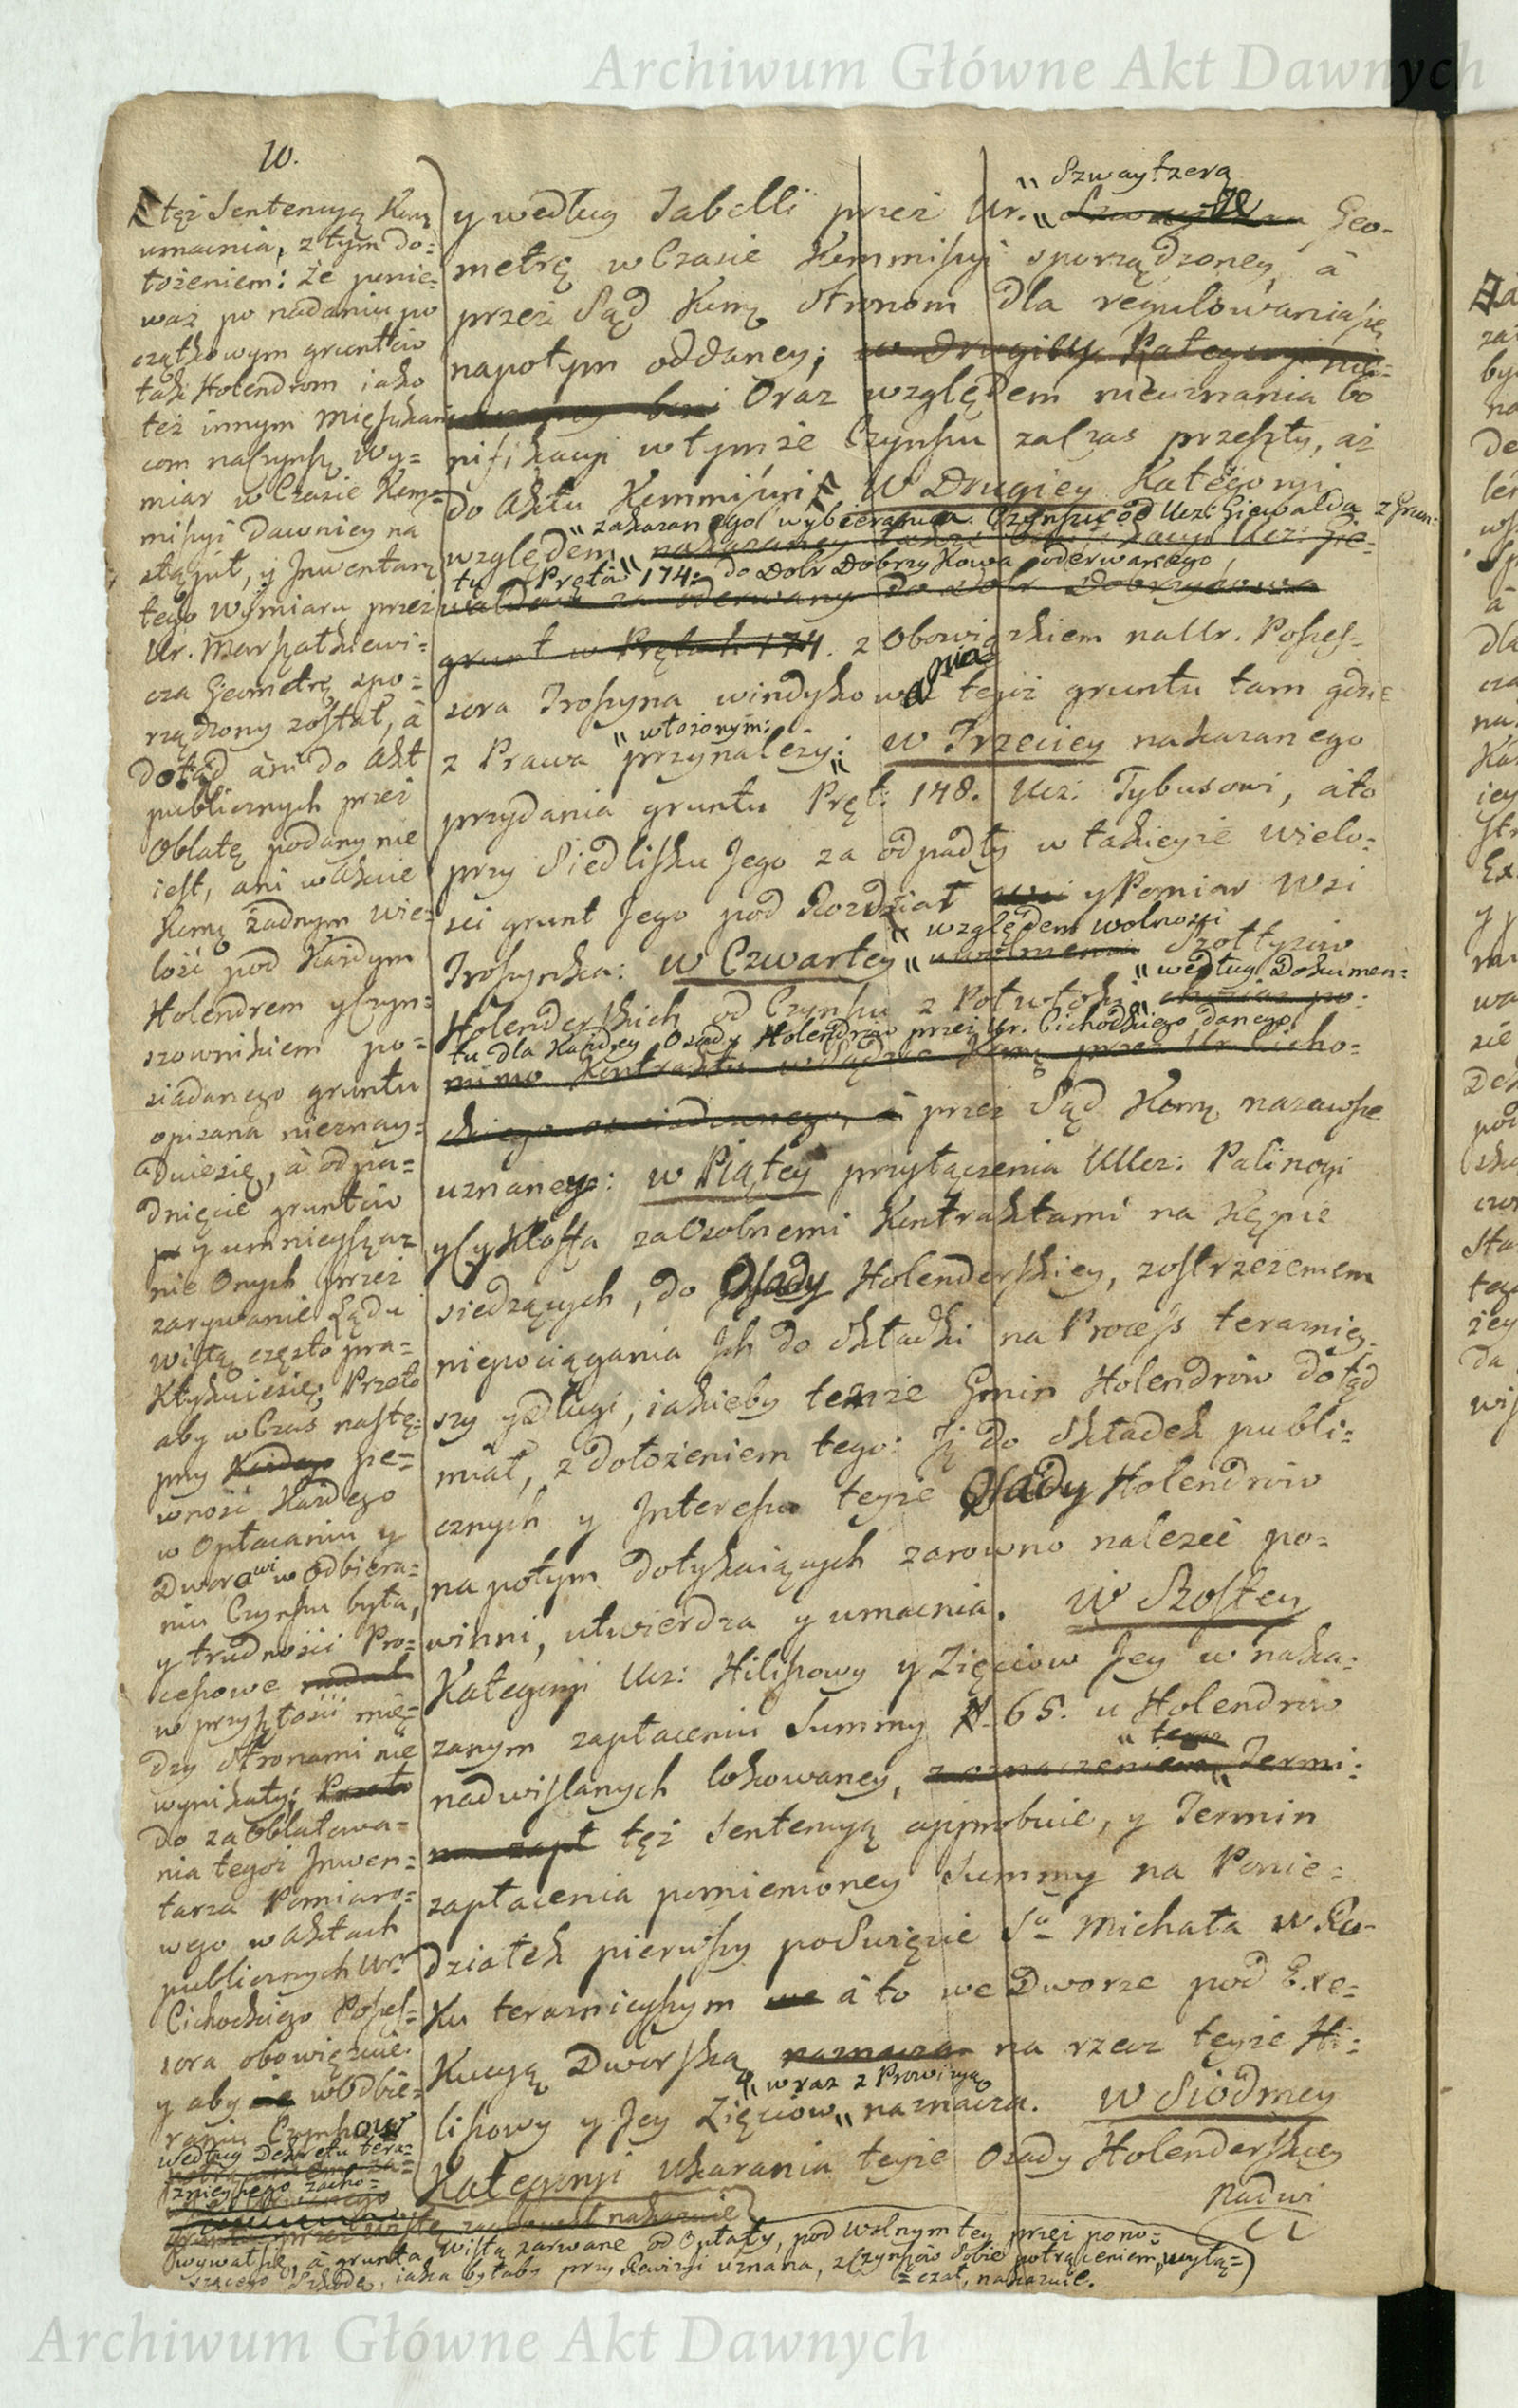 Archiwum Główne Akt Dawnych
10.
tęż Sentencyą Kom̃
umacnia, z tym do=
łożeniem: że ponie=
waż po nadaniu po
czątkowym gruntów
tak Holendrom iako
też innym Mięszkań
com na Czynsz, Wy=
miar w Czasie Kom=
missyi Dawniey na
stąpił, y Inwentarz
tego Wymiaru przez
Ur. Marszałkiewi=
cza Geometrę spo=
rządzony został, à
dotąd ani do Akt
publicznych przez
Oblatę podany nie
iest, ani w Akcie
Kom̃ żadnym wie=
lość pod Każdym
Holendrem y Czyn=
szownikiem po=
siadanego gruntu
opisana nieznay=
duie się, à odpa=
dnięcie gruntów
y umnieysza=
nie Onych przez
zarywanie Lądu
Wisłą często pra=
ktykuie się, Przeto
aby w Czas nastę=
pny Każdego pe=
wność Każdego
w Opłacaniu y
Dworowi w Odbiera=
niu Czynszu była,
y trudności Pro=
cessowe
w przyszłości mię=
dzy Stronami nie
wynikały; Przeto
do zaoblatowa=
nia tegoż Inwen=
tarza Pomiaro=
wego w Aktach
publicznych Ur.
Cichockiego Posses=
sora obowięzuie.
y aby w Odbie=
raniu Czynszow
według Dekretu tera=
znieyszego zacho=
wywał się, à grunta Wisłą zarwane od Opłaty, pod wolnym tey przez pono=
szącego Szkodę, iaka byłaby przy Rewizyi uznana, z Czynszów Sobie potrąceniem, wyłą=
=czał, nakazuie.
y według Tabelli przez Ur. " Szwaytzera Geo-
metrę w Czasie Kommissyi sporządzoney, à
przez Sąd Kom̃ Stronom dla regulowania się
napotym oddaney; w drugiey Kategoryi
Oraz względem nieuznania bo
nifikacyi w tymże Czynszu za Czas przeszły, aż
do Aktu Kommissyi, W Drugiey Kategoryi
względem " zakazanego wybierania Czynszu od Ucz: Giewalda z Grun-
tu Pręta 174: do Dobr Dobrzykowa oderwanego,
grunt w Prętach 174. z Obowiązkiem na Ur. Posses-
sora Troszyna windykowania tegoż gruntu tam gdzie
z Prawa przynależy; " włożonym: w Trzeciey nakazanego
przydania gruntu Pręt: 148. Ucz: Tybusowi, à to
przy Siedlisku Jego za odpadły w takieyże wielo=
sci grunt Jego pod Rozdział y Pomiar Wsi
Troszynka: w Czwartey " względem wolności Szołtysow
Holenderskich od Czynszu z Pół włoki " według Dokumen=
tu dla Każdey Osady Holendrów przez Ur. Cichockiego danego,
mimo Kontraktu w Sądzie Kom̃ przez Ur. Cicho=
ckiego à przez Sąd Kom̃ nazawsze
uznaney: w Piątey przyłączenia UUcz: Palinogi
y Klossa za Osobnemi Kontraktami na Kępie
siedzących, do Osady Holenderskiey, zostrzeżeniem
niepociągania Jch do Składki na Process terazniey-
szy y długi, iakieby tenże Gmin Holendrów dotąd
miał, z dołożeniem tego: Jż do Składek publi=
cznych y Interessu teyże Osady Holendrów
napotym dotykaiących zarowno należeć po=
winni, utwierdza y umacnia. W Szostey
Kategoryi Ucz: Hilszowy y Zięciow Jey w naka=
zanym zapłaceniu Summy Zł. 65. u Holendrów
nadwiślanych lokowaney, z oznaczeniem Termi=
nu zapł tęż Sentencyą approbuie, y Termin
zapłacenia pomienioney Summy na Ponie=
działek pierwszy po Święcie Sо Michała w Ro-
ku teraznieyszym à to we Dworze pod Exe=
kucyą Dworską naznacza na rzecz teyże Hi=
lszowy y Jey Zięciów " wraz z Prowizyą naznacza. W Siodmey
Kategoryi Ukarania teyże Osady Holenderskiey
Nadwi
Archiwum Główne Akt Dawnych